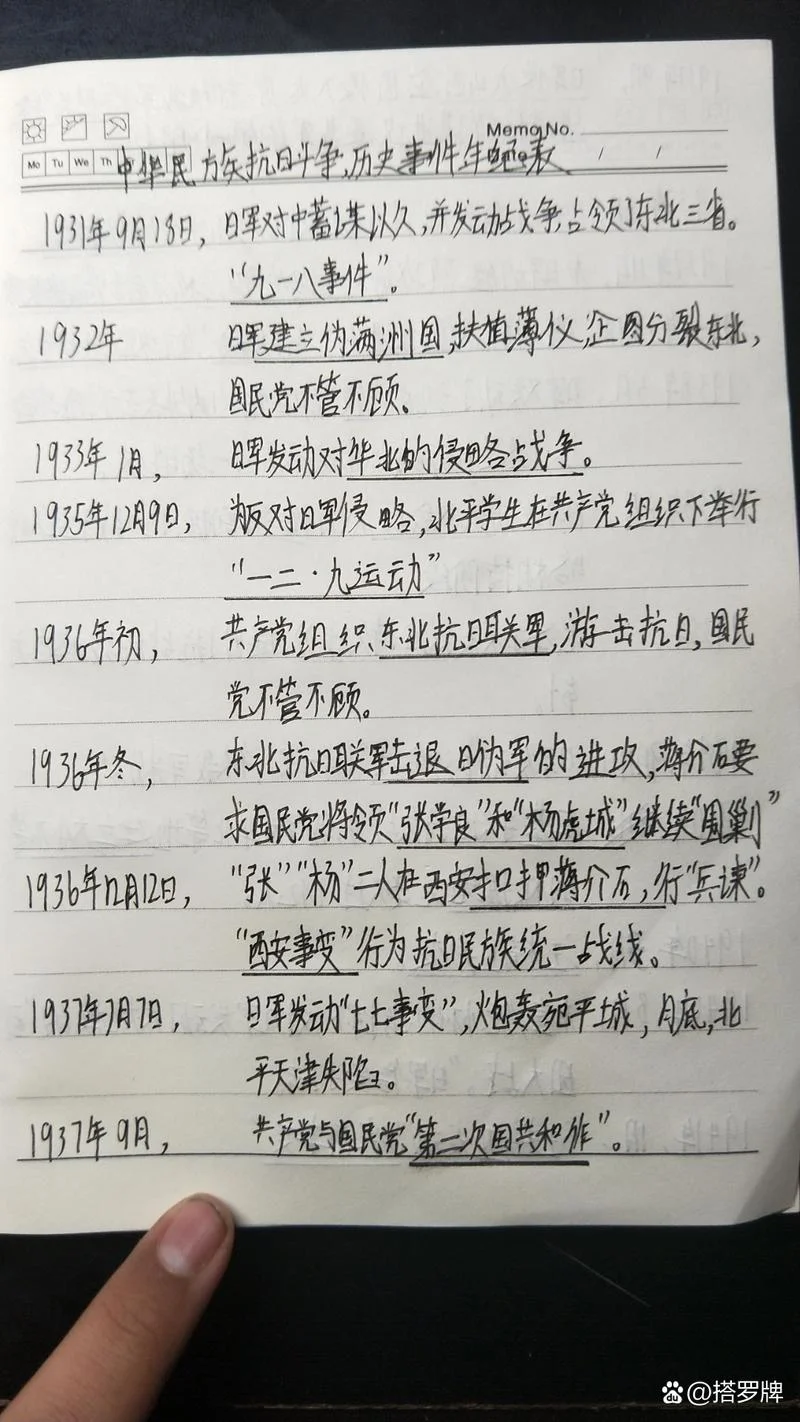 Memo No.
Mo Tu We Th
中华民族抗日斗争,历史事件年纪表
1931年9月18日, 日军对中蓄谋以久,并发动战争占领了东北三省。
“九一八事件”。
1932年 日军建立伪满洲国,扶植薄仪,企图分裂东北,
国民党不管不顾。
1933年1月, 日军发动对华北的侵略战争。
1935年12月9日, 为反对日军侵略,北平学生在共产党组织下举行
“一二·九运动”
1936年初, 共产党组织东北抗日联军,游击抗日,国民
党不管不顾。
1936年冬, 东北抗日联军击退日伪军的进攻,蒋介石要
求国民党将领“张学良”和“杨虎城”继续“围剿”
1936年12月12日, “张”“杨”二人在西安扣押蒋介石,行“兵谏”。
“西安事变”行为抗日民族统一战线。
1937年7月7日, 日军发动“七七事变”,炮轰宛平城,月底,北
平天津失陷。
1937年9月, 共产党与国民党“第二次国共和作”。
@搭罗牌